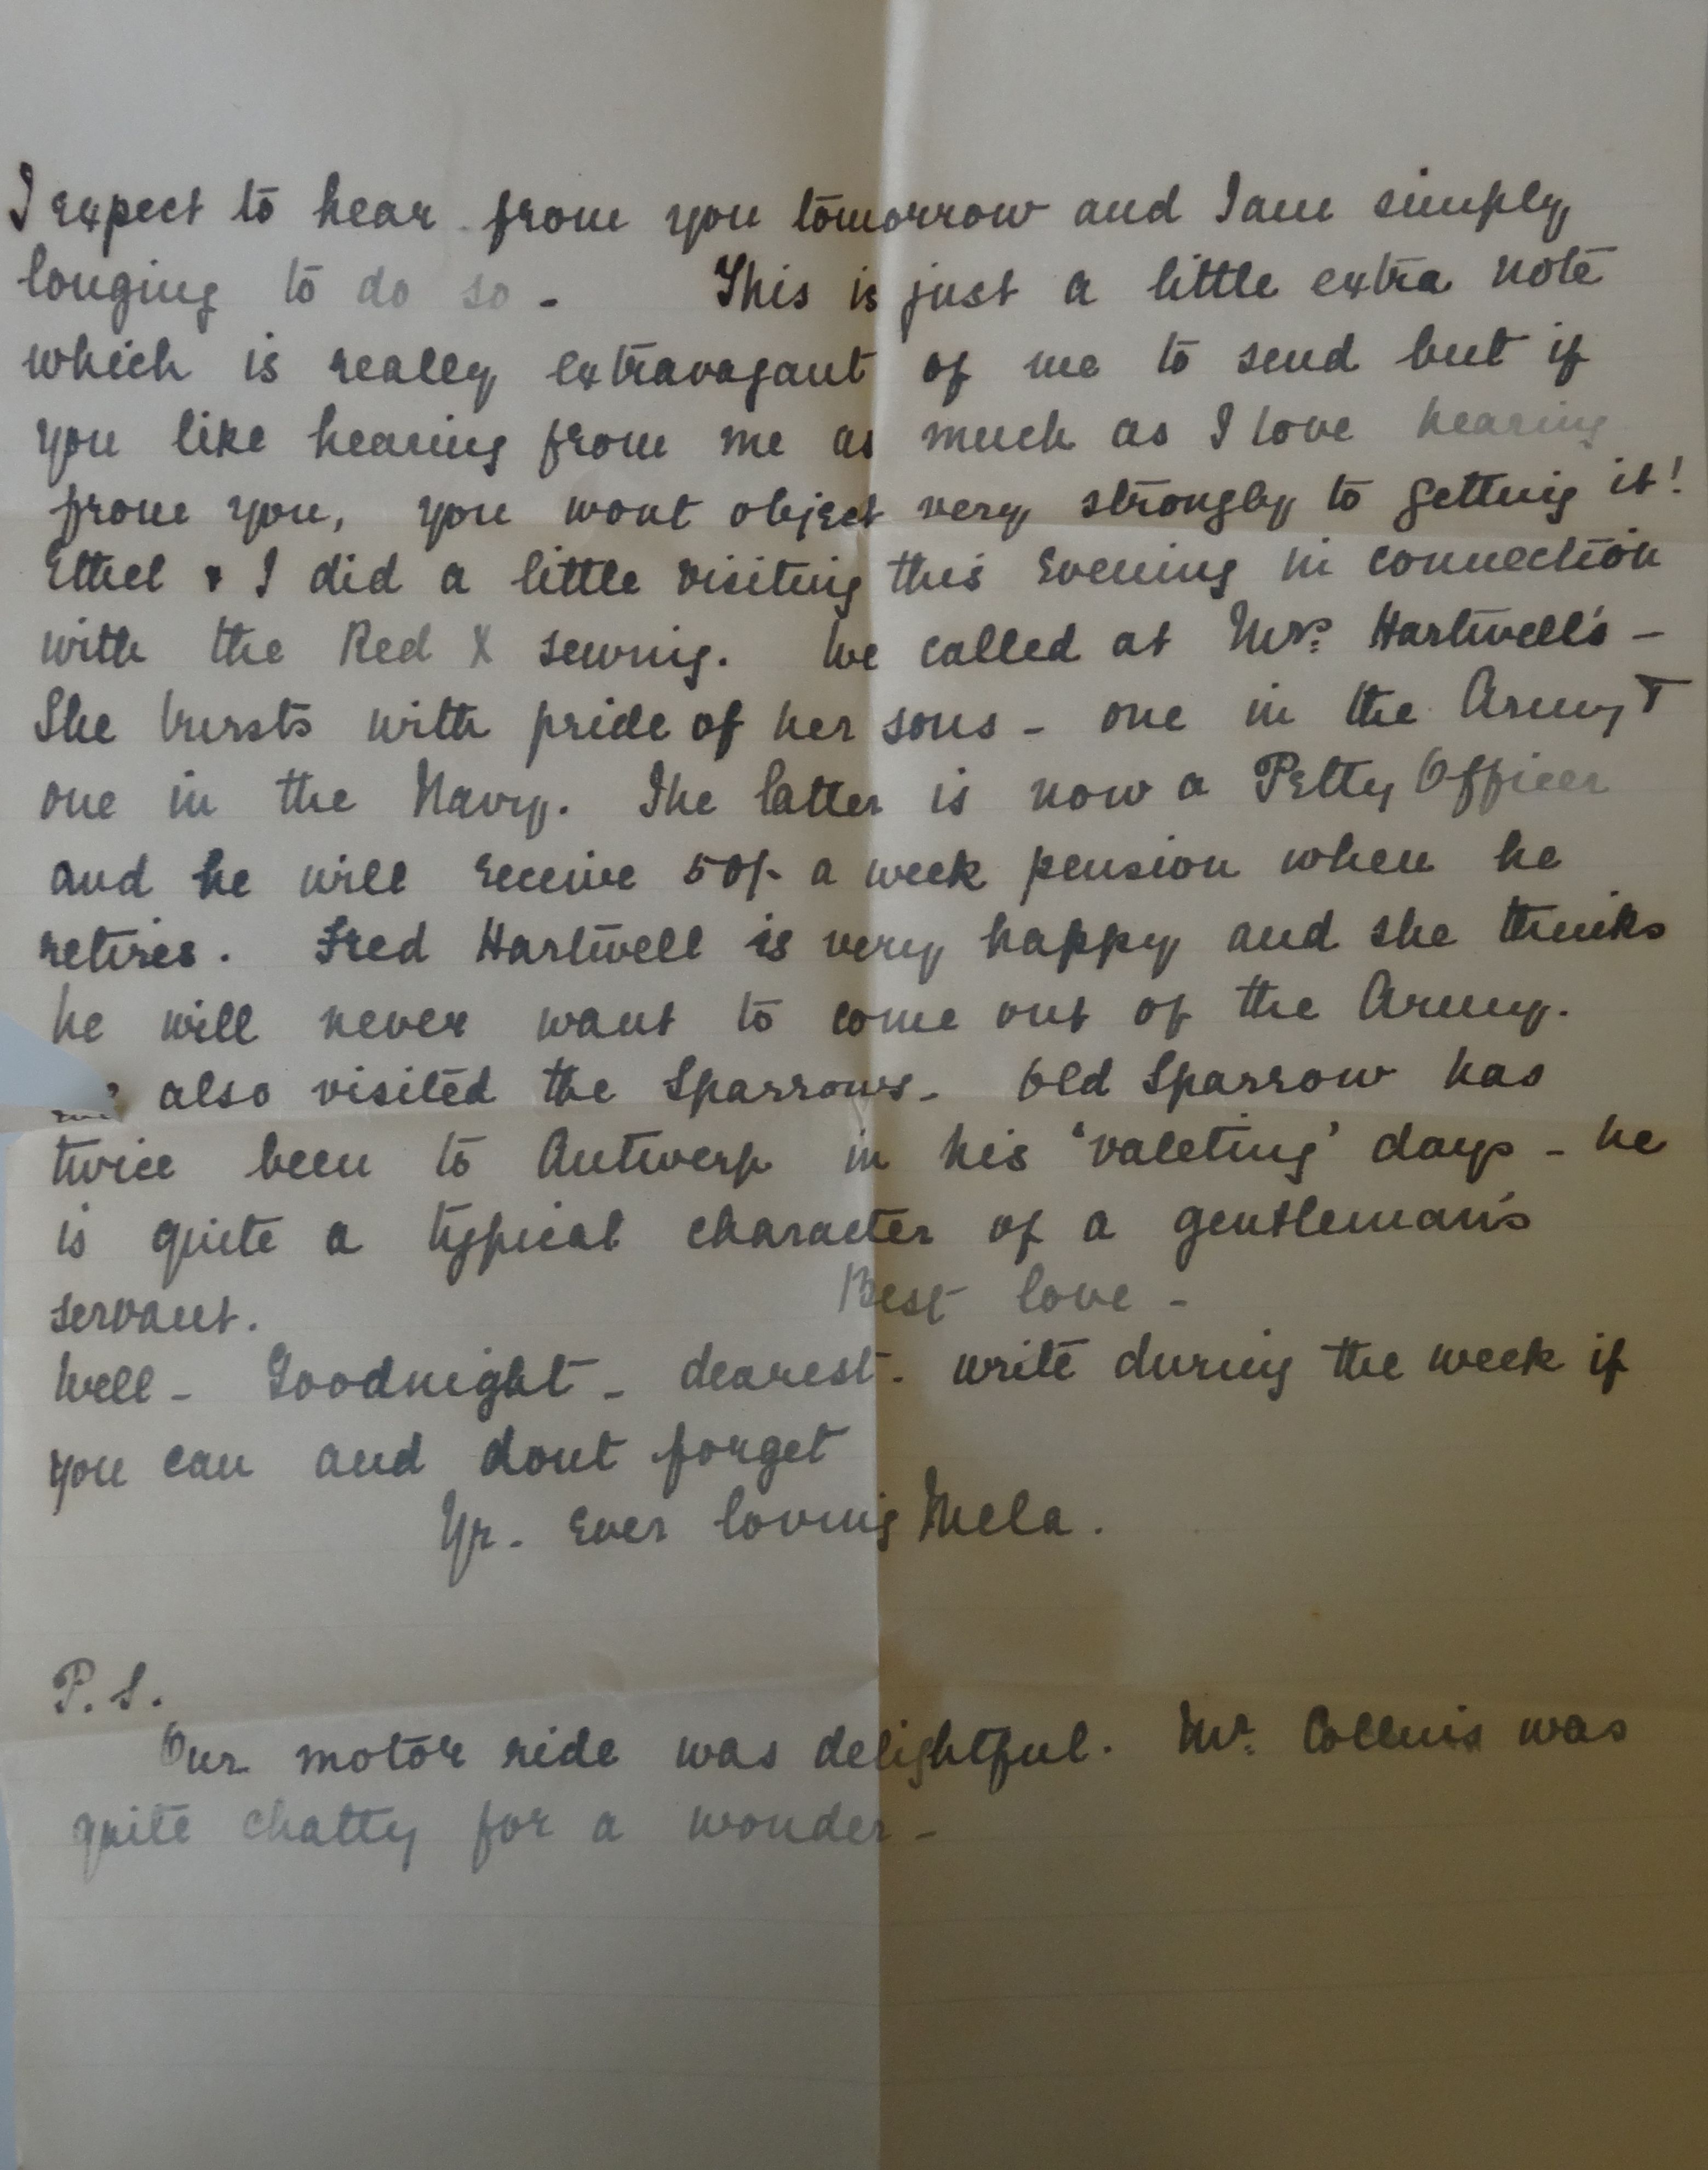 I expect to hear from you tomorrow and I am simply
longing to do so - This is just a little extra note
which is really extravagant of me to send but if
you like hearing from me as much as I love hearing
from you, you wont object very strongly to getting it!
Ethel & I did a little visiting this evening in connection
with the Red X sewing. We called at Mrs. Hartwell's -
She bursts with pride of her sons - one in the Army &
one in the Navy. The latter is now a Petty Officer
and he will receive 50/- a week pension when he
retires. Fred Hartwell is very happy and she thinks
he will never want to come out of the Army.
also visited the Sparrows - Old Sparrow has
twice been to Antwerp in his 'valeting' days - he
is quite a typical character of a gentleman's
servant. Best love -
Well - Goodnight - dearest - write during the week if
you can and dont forget
Yr. Ever loving Mela.
P.S.
Our motor ride was delightful. Mr. Collins was
quite chatty for a wonder -